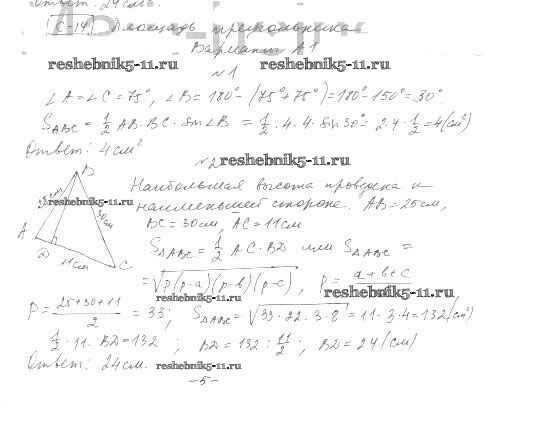 Ответ: 24 см.
С-14 Площадь треугольника
Вариант А1
reshebnik5-11.ru reshebnik5-11.ru
№1
∠A=∠C=75°, ∠B=180°-(75°+75°)=180°-150°=30°.
S_ABC = 1/2 AB·BC·sin∠B = 1/2·4·4·sin30°= 2·4·1/2=4(см²)
Ответ: 4см²
№2 reshebnik5-11.ru
Наибольшая высота проведена к
reshebnik5-11.ru
наименьшей стороне. AB=25см,
BC=30см, AC=11см
B
30см
A
D
11см
C
S_ΔABC = 1/2 AC·BD или S_ΔABC =
= √p(p-a)(p-b)(p-c) , P = a+b+c
reshebnik5-11.ru
P = 25+30+11/2 = 33; S_ΔABC = √33·22·3·8 = 11·3·4=132(см²)
1/2·11·BD=132 ; BD=132 : 11/2 ; BD=24(см)
Ответ: 24см. reshebnik5-11.ru
-5-